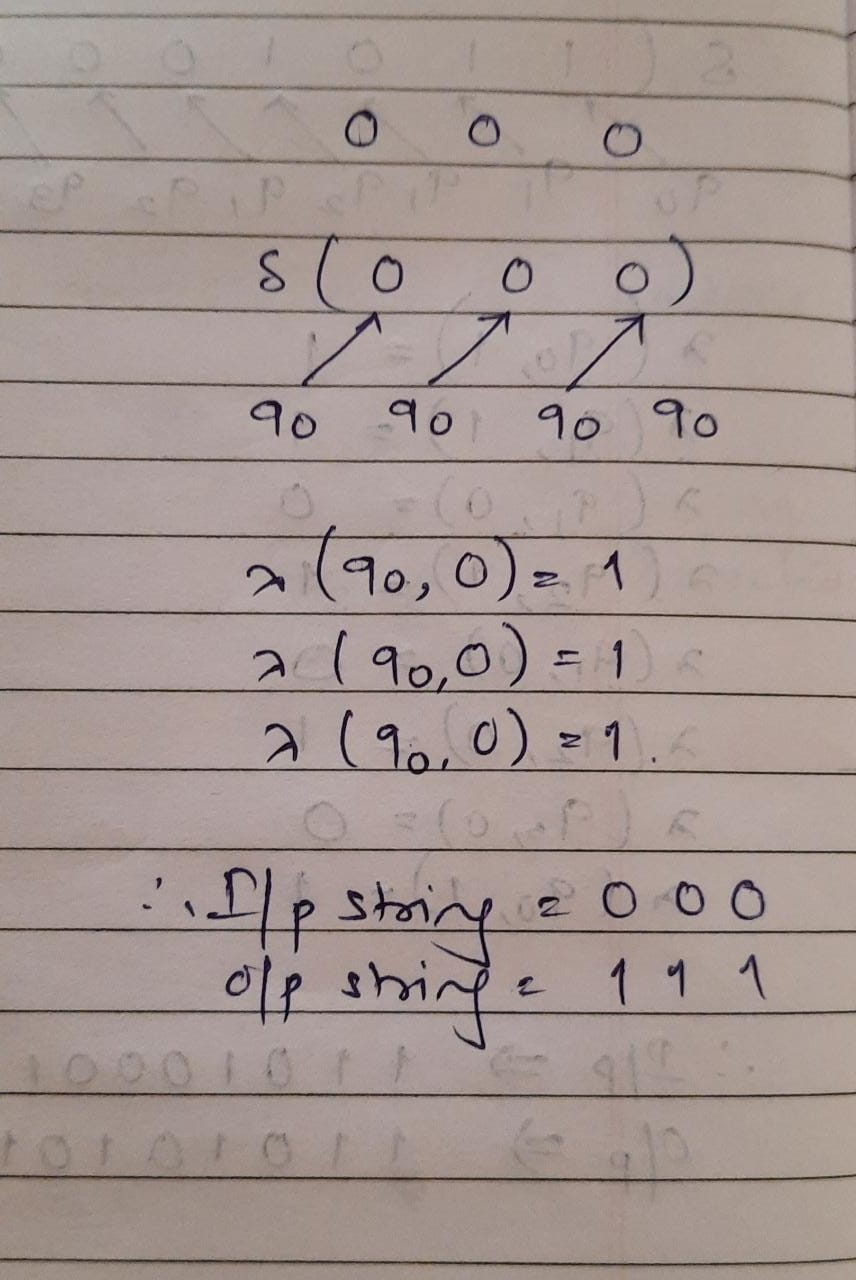 0 0 0
δ ( 0 0 0 )
q0 q0 q0 q0
λ (q0, 0) = 1
λ (q0, 0) = 1
λ (q0, 0) = 1.
∴ I/p string = 0 0 0
o/p string = 1 1 1